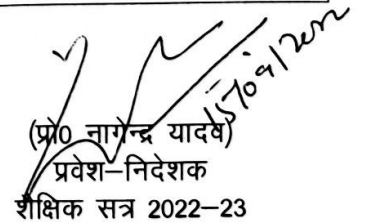 15/09/2022
(प्रो0 नागेन्द्र यादव)
प्रवेश–निदेशक
शैक्षिक सत्र 2022–23